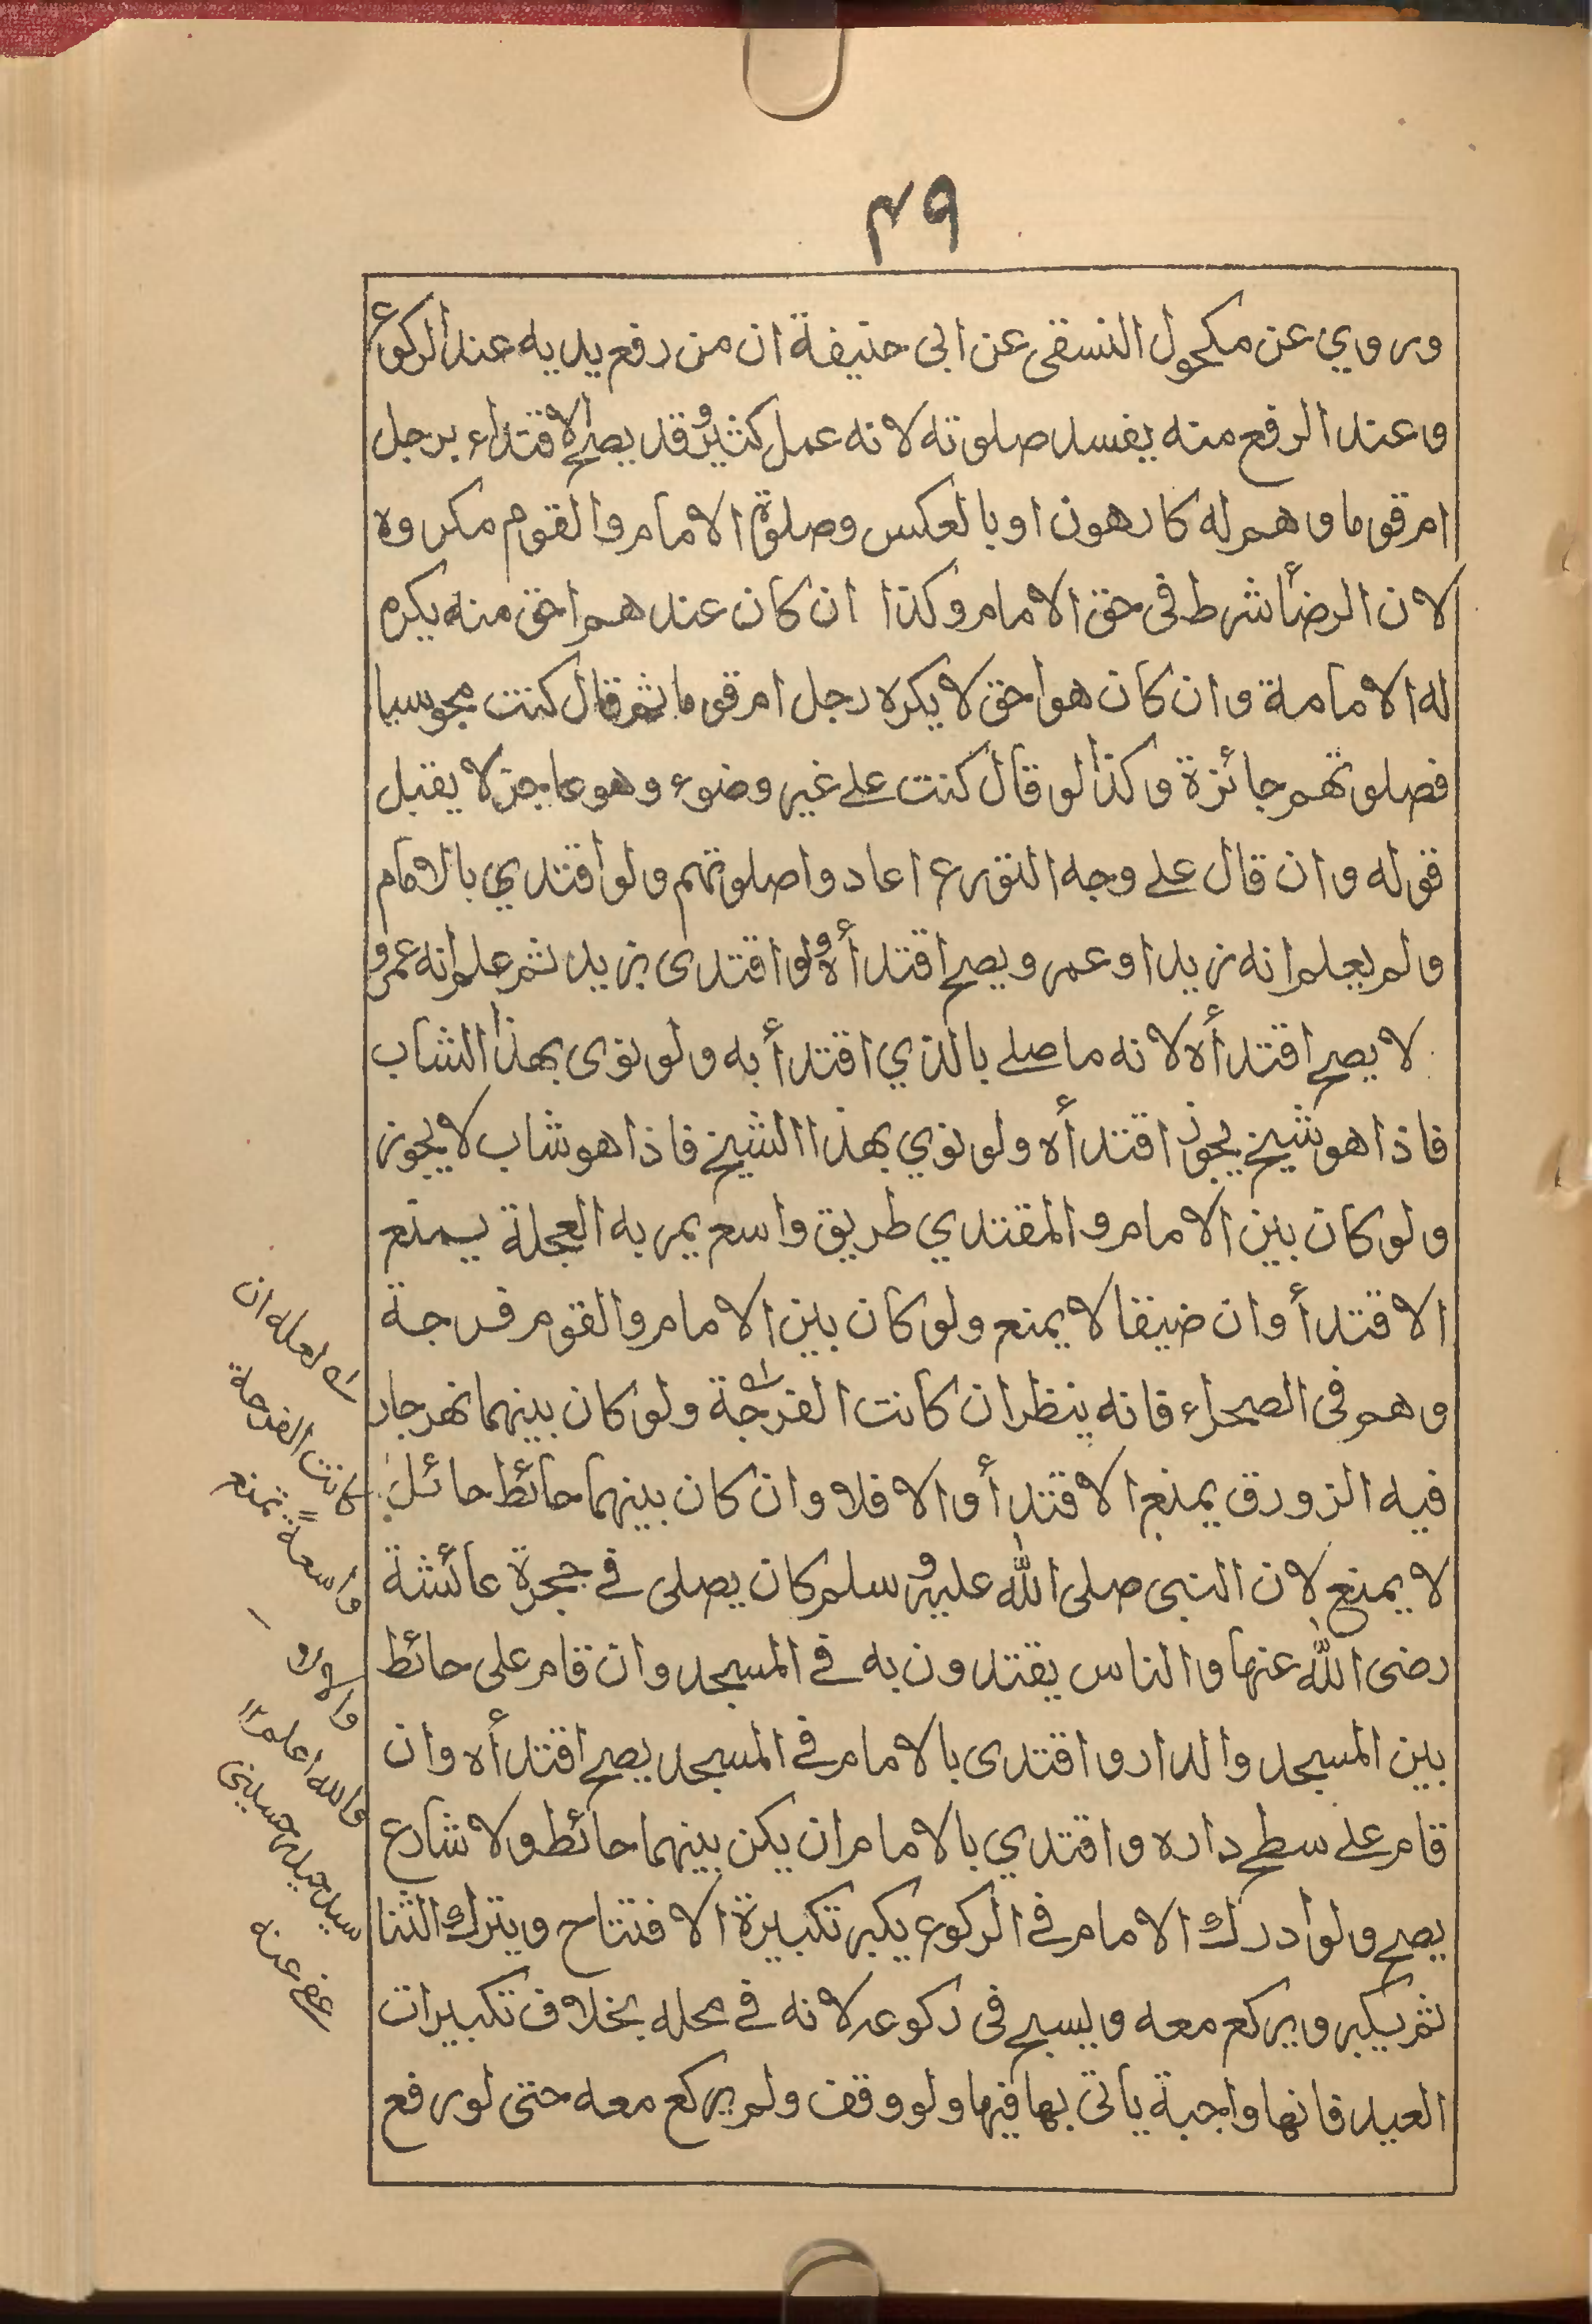 ٤٩
وروي عن مكحول النسفى عن ابى حنيفة ان من رفع يديه عند الركوع
وعند الرفع منه يفسد صلوته لانه عمل كثير وقد يصح الاقتداء برجل
ام قوما وهم له كارهون او بالعكس وصلوة الامام والقوم مكروه
لان الرضأ شرط فى حق الامام وكذا ان كان عندهم احق منه يكره
له الامامة وان كان هو احق لا يكره رجل ام قوما ثم قال كنت مجوسيا
فصلوتهم جائزة وكذا لو قال كنت على غير وضوء وهو عاجز لا يقبل
قوله وان قال على وجه التورع اعادوا صلوتهم ولو اقتدي بالامام
ولم يعلم انه زيد او عمر ويصح اقتدأه ولو اقتدى بزيد ثم علم انه عمرو
لا يصح اقتدأه لانه ما صلى بالذي اقتدأ به ولو نوى بهذا الشاب
فاذا هو شيخ يجوز اقتدأه ولو نوي بهذا الشيخ فاذا هو شاب لا يجوز
ولو كان بين الامام والمقتدي طريق واسع يمر به العجلة يمنع
الاقتدأ وان ضيقا لا يمنع ولو كان بين الامام والقوم فرجة
وهم فى الصحراء فانه ينظر ان كانت الفرجة ولو كان بينهما نهر جار
فيه الزورق يمنع الاقتدأ والا فلا وان كان بينهما حائط حائل
لا يمنع لان النبى صلى الله عليه وسلم كان يصلى فى حجرة عائشة
رضى الله عنها والناس يقتدون به فى المسجد وان قام على حائط
بين المسجد والدار واقتدى بالامام فى المسجد يصح اقتدأه وان
قام على سطح داره واقتدي بالامام ان يكن بينهما حائط ولا شارع
يصح ولو ادرك الامام فى الركوع يكبر تكبيرة الافتتاح ويترك الثنا
ثم يكبر ويركع معه ويسبح فى ركوعه لانه فى محله بخلاف تكبيرات
العيد فانها واجبة ياتى بها فيها ولو وقف ولم يركع معه حتى لو رفع
لعله ان
كانت الفرجة
واسعة تمنع
والا لا
والله اعلم
سيد حيدر حسينى
عفى عنه